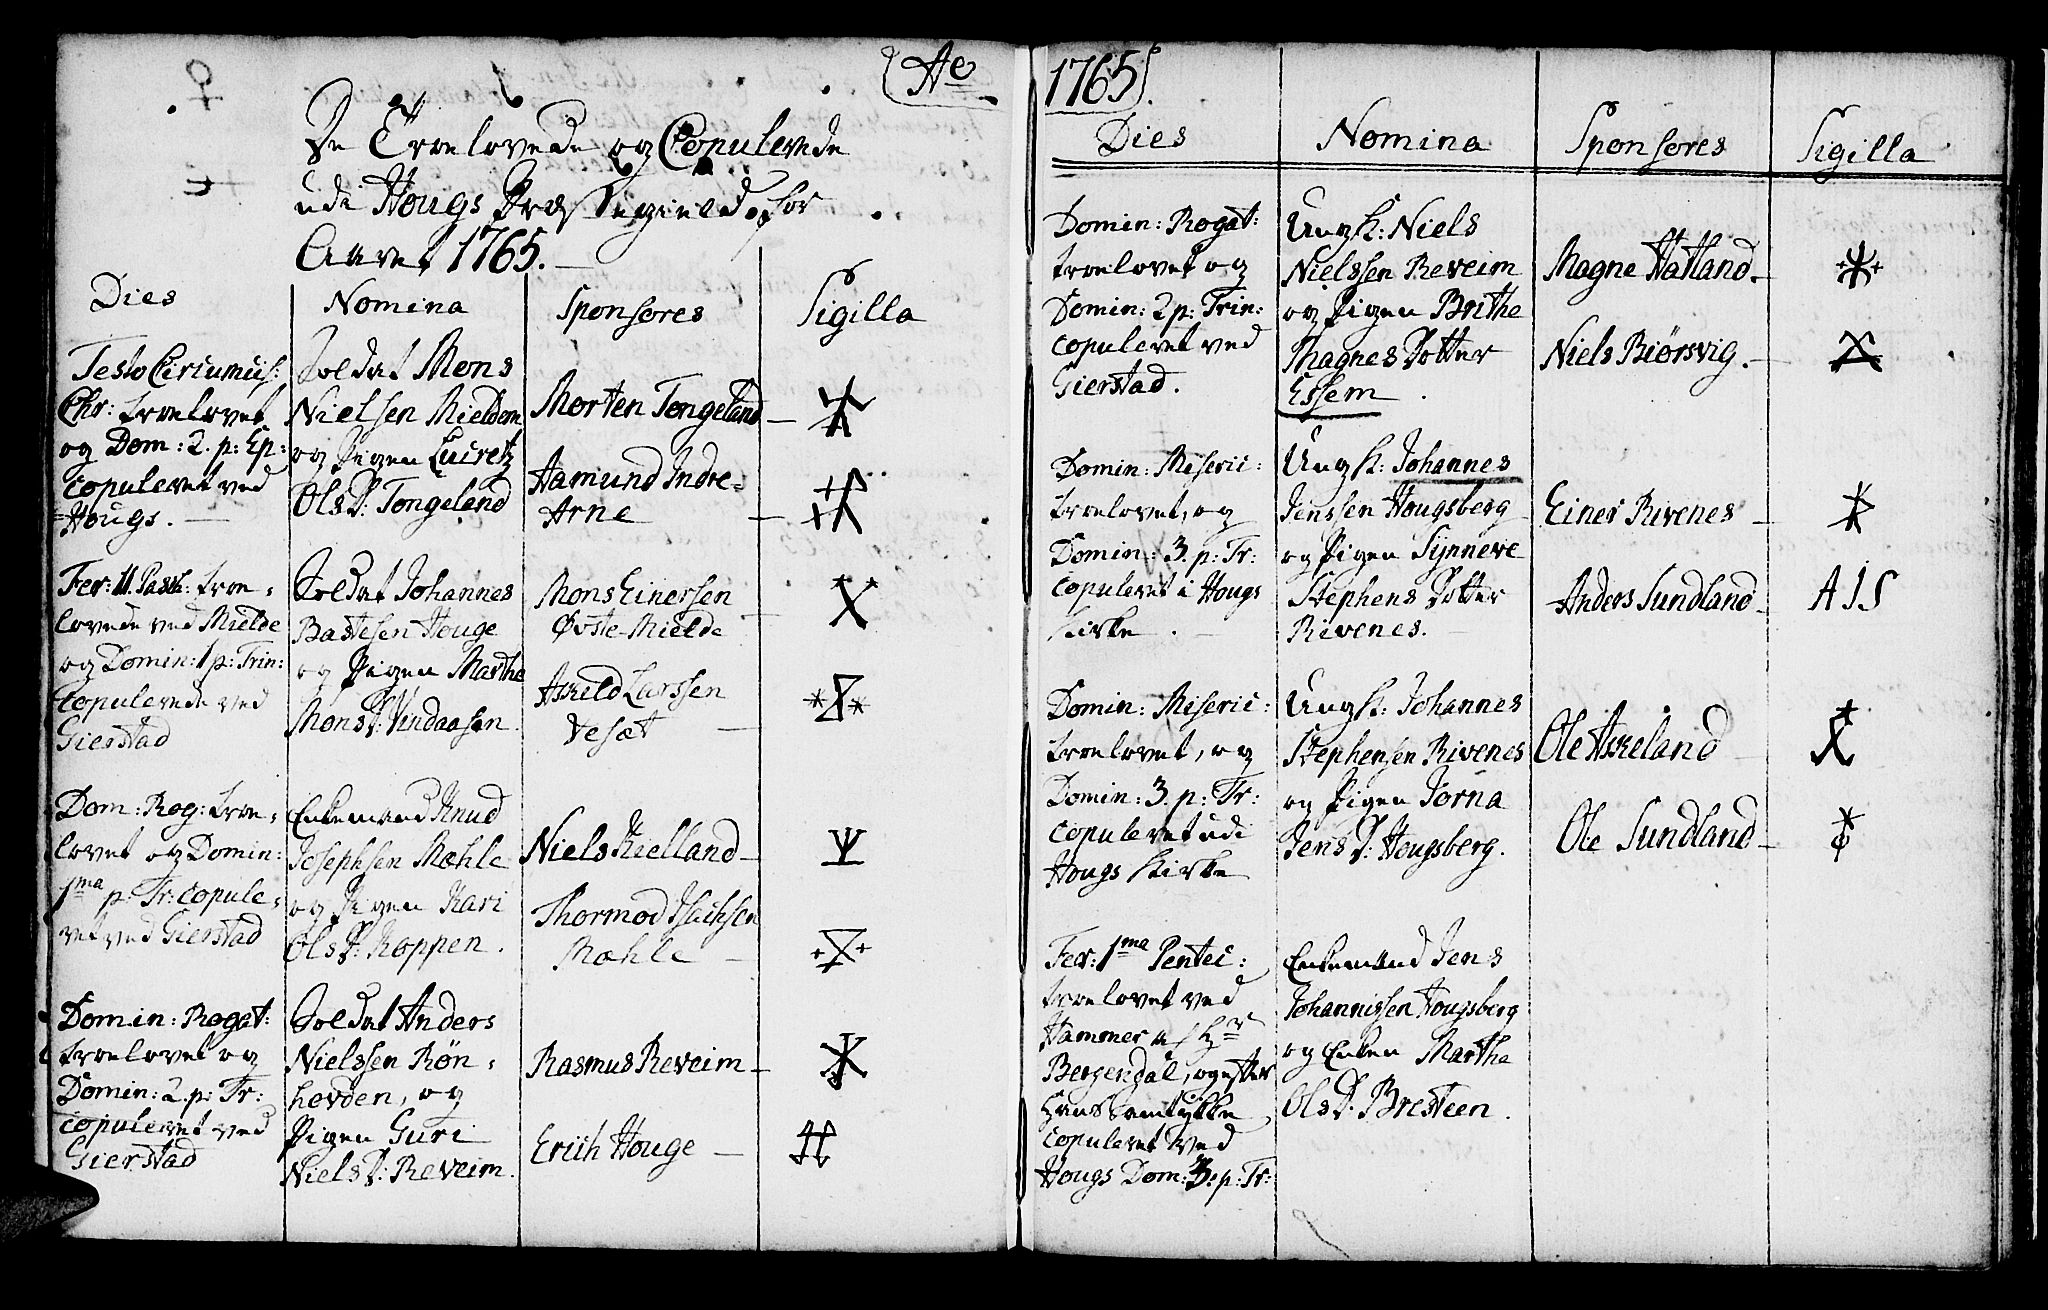 Ao
De Troelovede og Copulerede
udi Hougs Præstegield for
Aaret 1765.
Dies Nomina Sponsores Sigilla
Festo Circumcis:
Chr: troelovet
og Dom: 2. p: Ep:
copuleret ved
Hougs.
Soldat Mons
Nielsen Mieldem
og Pigen Lucretz
Ols D: Tongeland
Morten Tongeland
Aamund Indre=
Arne
Fer: II. Pasch: troe=
lovede ved Mielde
og Domin: 1 p: Trin:
copulerede ved
Gierstad
Soldat Johannes
Bastesen Houge
og Pigen Marthe
Mons D: Vindaasen
Mons Einersen
Øvste-Mielde
Askeld Larssen
Vesæt
Dom: Rog: troe=
lovet og Domin:
1ma p: Tr: copule=
ret ved Gierstad
Enkemand Knud
Josephsen Mæhle
og Pigen Kari
Ols D: Koppen.
Niels Kielland
Thormod Isachsen
Mæhle
Domin: Rogat:
troelovet og
Domin: 2. p: Tr:
copuleret ved
Gierstad
Soldat Anders
Nielssen Røn=
hovden, og
Pigen Guri
Niels D: Reveim.
Rasmus Reveim
Erich Houge
1765.
Dies Nomina Sponsores Sigilla
Domin: Rogat:
troelovet og
Domin: 2 p: Trin:
copuleret ved
Gierstad.
Ung K: Niels
Nielssen Reveim
og Pigen Brithe
Magnes Dotter
Essem.
Magne Hatland.
Niels Biørsvig.
Domin: Miseric:
troelovet, og
Domin: 3. p: Tr:
copuleret i Hougs
Kirke.
Ung K: Johannes
Jenssen Hougsberg
og Pigen Synneve
Stephens Dotter
Rivenes.
Einer Rivenes
Anders Sundland
A I S
Domin: Miseric:
troelovet, og
Domin: 3. p: Tr:
copuleret udi
Hougs Kirke
Ung K: Johannes
Stephensen Rivenes
og Pigen Jorna
Jens D: Hougsberg.
Ole Askeland
Ole Sundland
Fer: 1ma Pentec:
troelovet ved
Hammer af Hr
Bergendal, og efter
Hans Samtykke
copuleret ved
Hougs Dom: 3. p: Tr:
Enkemand Jens
Johannissen Hougsberg
og Enken Marthe
Ols D: Bresteen.